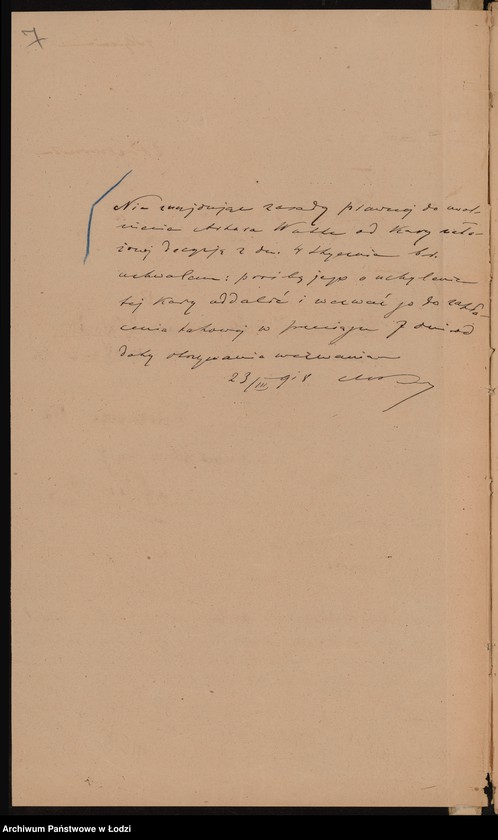 7
Nie znajdując zasady prawnej do uwol-
nienia Artura Wahle od kary nało-
żonej decyzją z dn. 4 stycznia br.
uchwalam: prośbę jego o uchylenie
tej kary oddalić i wezwać go do zapła-
cenia takowej w przeciągu 7 dni od
daty otrzymania wezwania
23/III 918
Archiwum Państwowe w Łodzi